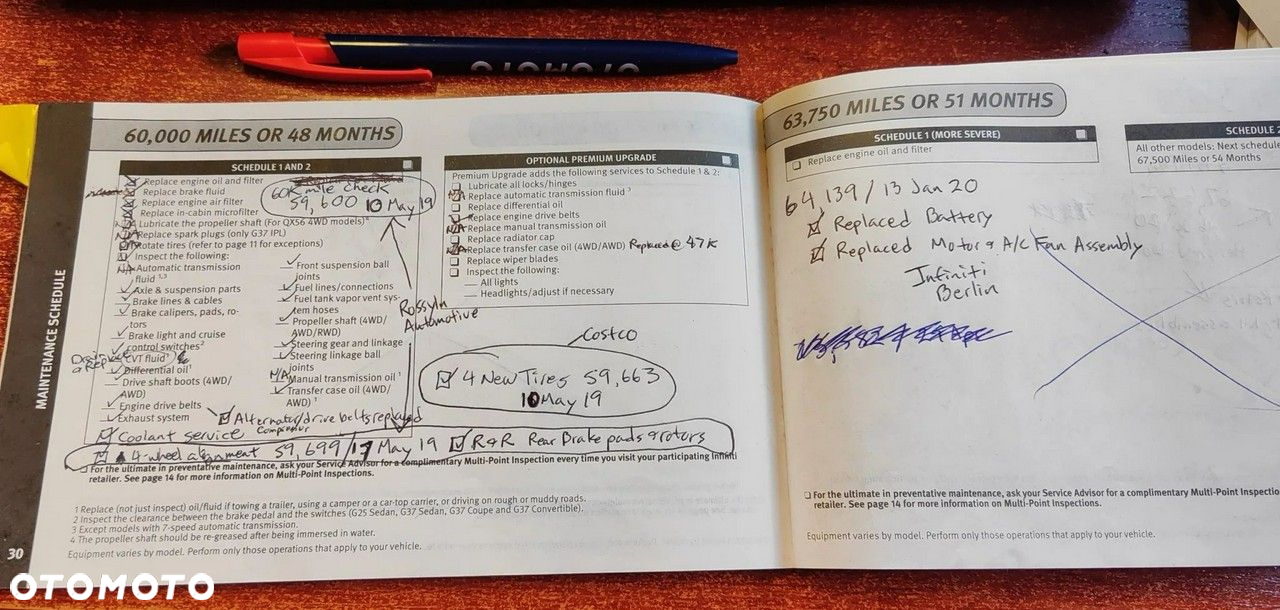 OTOMOTO
60,000 MILES OR 48 MONTHS
SCHEDULE 1 AND 2
Replace engine oil and filter
Replace brake fluid
Replace engine air filter
Replace in-cabin microfilter
Lubricate the propeller shaft (For QX56 4WD models)⁴
Replace spark plugs (only G37 IPL)
Rotate tires (refer to page 11 for exceptions)
Inspect the following:
N/A Automatic transmission
fluid ¹,³
Axle & suspension parts
Brake lines & cables
Brake calipers, pads, ro-
tors
Brake light and cruise
control switches²
CVT fluid¹
Differential oil¹
Drive shaft boots (4WD/
AWD)
Engine drive belts
Exhaust system
Front suspension ball
joints
Fuel lines/connections
Fuel tank vapor vent sys
tem hoses
Propeller shaft (4WD/
AWD/RWD)
Steering gear and linkage
Steering linkage ball
joints
N/A Manual transmission oil ¹
Transfer case oil (4WD/
AWD) ¹
60K mile check
59,600 10 May 19
Rosslyn
Automotive
Alternator/drive belts replaced
Compressor
Coolant service
4-wheel alignment 59,699/17 May 19 R&R Rear Brake pads & rotors
OPTIONAL PREMIUM UPGRADE
Premium Upgrade adds the following services to Schedule 1 & 2:
Lubricate all locks/hinges
N/A Replace automatic transmission fluid ³
Replace differential oil
Replace engine drive belts
N/A Replace manual transmission oil
Replace radiator cap
N/A Replace transfer case oil (4WD/AWD) Replaced @ 47K
Replace wiper blades
Inspect the following:
All lights
Headlights/adjust if necessary
Costco
4 New Tires 59,663
10 May 19
For the ultimate in preventative maintenance, ask your Service Advisor for a complimentary Multi-Point Inspection every time you visit your participating Infiniti
retailer. See page 14 for more information on Multi-Point Inspections.
1 Replace (not just inspect) oil/fluid if towing a trailer, using a camper or a car-top carrier, or driving on rough or muddy roads.
2 Inspect the clearance between the brake pedal and the switches (G25 Sedan, G37 Sedan, G37 Coupe and G37 Convertible).
3 Except models with 7-speed automatic transmission.
4 The propeller shaft should be re-greased after being immersed in water.
Equipment varies by model. Perform only those operations that apply to your vehicle.
MAINTENANCE SCHEDULE
30
63,750 MILES OR 51 MONTHS
SCHEDULE 1 (MORE SEVERE)
Replace engine oil and filter
SCHEDULE 2
All other models: Next schedule
67,500 Miles or 54 Months
64,139 / 13 Jan 20
Replaced Battery
Replaced Motor & A/C Fan Assembly
Infiniti
Berlin
For the ultimate in preventative maintenance, ask your Service Advisor for a complimentary Multi-Point Inspectio
retailer. See page 14 for more information on Multi-Point Inspections.
Equipment varies by model. Perform only those operations that apply to your vehicle.
OTOMOTO